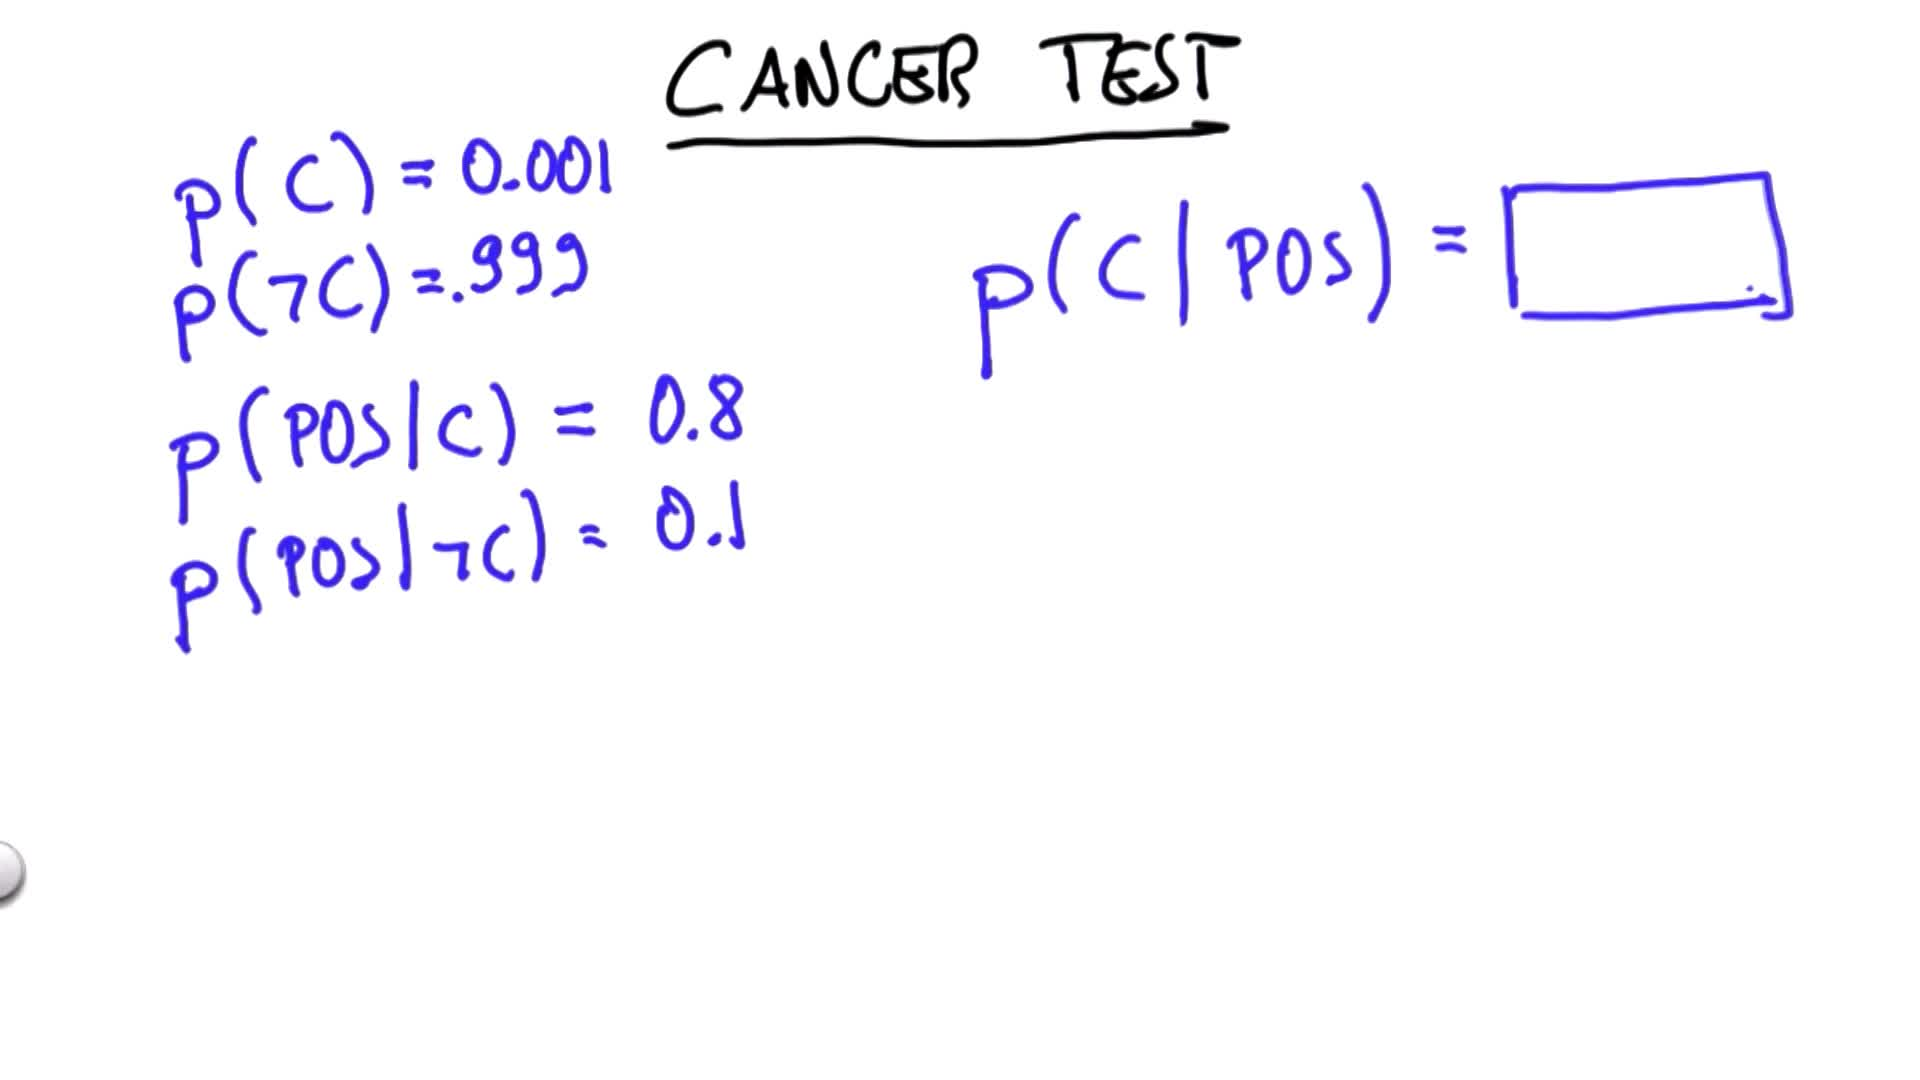 CANCER TEST
p(C) = 0.001
p(¬C) = .999
p(POS|C) = 0.8
p(POS|¬C) = 0.1
p(C|POS) =